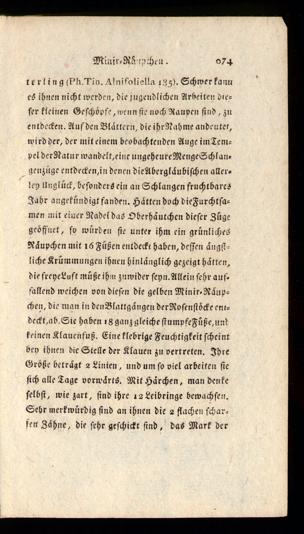 Minir-Räupchen. 074
terling (Ph. Tin. Alnifoliella 135). Schwer kann
es ihnen nicht werden, die jugendlichen Arbeiten die-
ser kleinen Geschöpfe, wenn sie noch Raupen sind, zu
entdecken. Auf den Blättern, die ihr Nahme andeutet,
wird der, der mit einem beobachtenden Auge im Tem-
pel der Natur wandelt, eine ungeheure Menge Schlan-
genzüge entdecken, in denen die Abergläubischen aller-
ley Unglück, besonders ein an Schlangen fruchtbares
Jahr angekündigt fanden. Hätten doch die Furchtsa-
men mit einer Nadel das Oberhäutchen dieser Züge
geöffnet, so würden sie unter ihm ein grünliches
Räupchen mit 16 Füßen entdeckt haben, dessen ängst-
liche Krümmungen ihnen hinlänglich gezeigt hätten,
die freye Luft müße ihm zuwider seyn. Allein sehr auf-
fallend weichen von diesen die gelben Minir-Räup-
chen, die man in den Blattgängen der Rosenstöcke ent-
deckt, ab. Sie haben 18 ganz gleiche stumpfe Füße, und
keinen Klauenfuß. Eine klebrige Feuchtigkeit scheint
bey ihnen die Stelle der Klauen zu vertreten. Ihre
Größe beträgt 2 Linien, und um so viel arbeiten sie
sich alle Tage vorwärts. Mit Härchen, man denke
selbst, wie zart, sind ihre 12 Leibringe bewachsen.
Sehr merkwürdig sind an ihnen die 2 flachen schar-
fen Zähne, die sehr geschickt sind, das Mark der